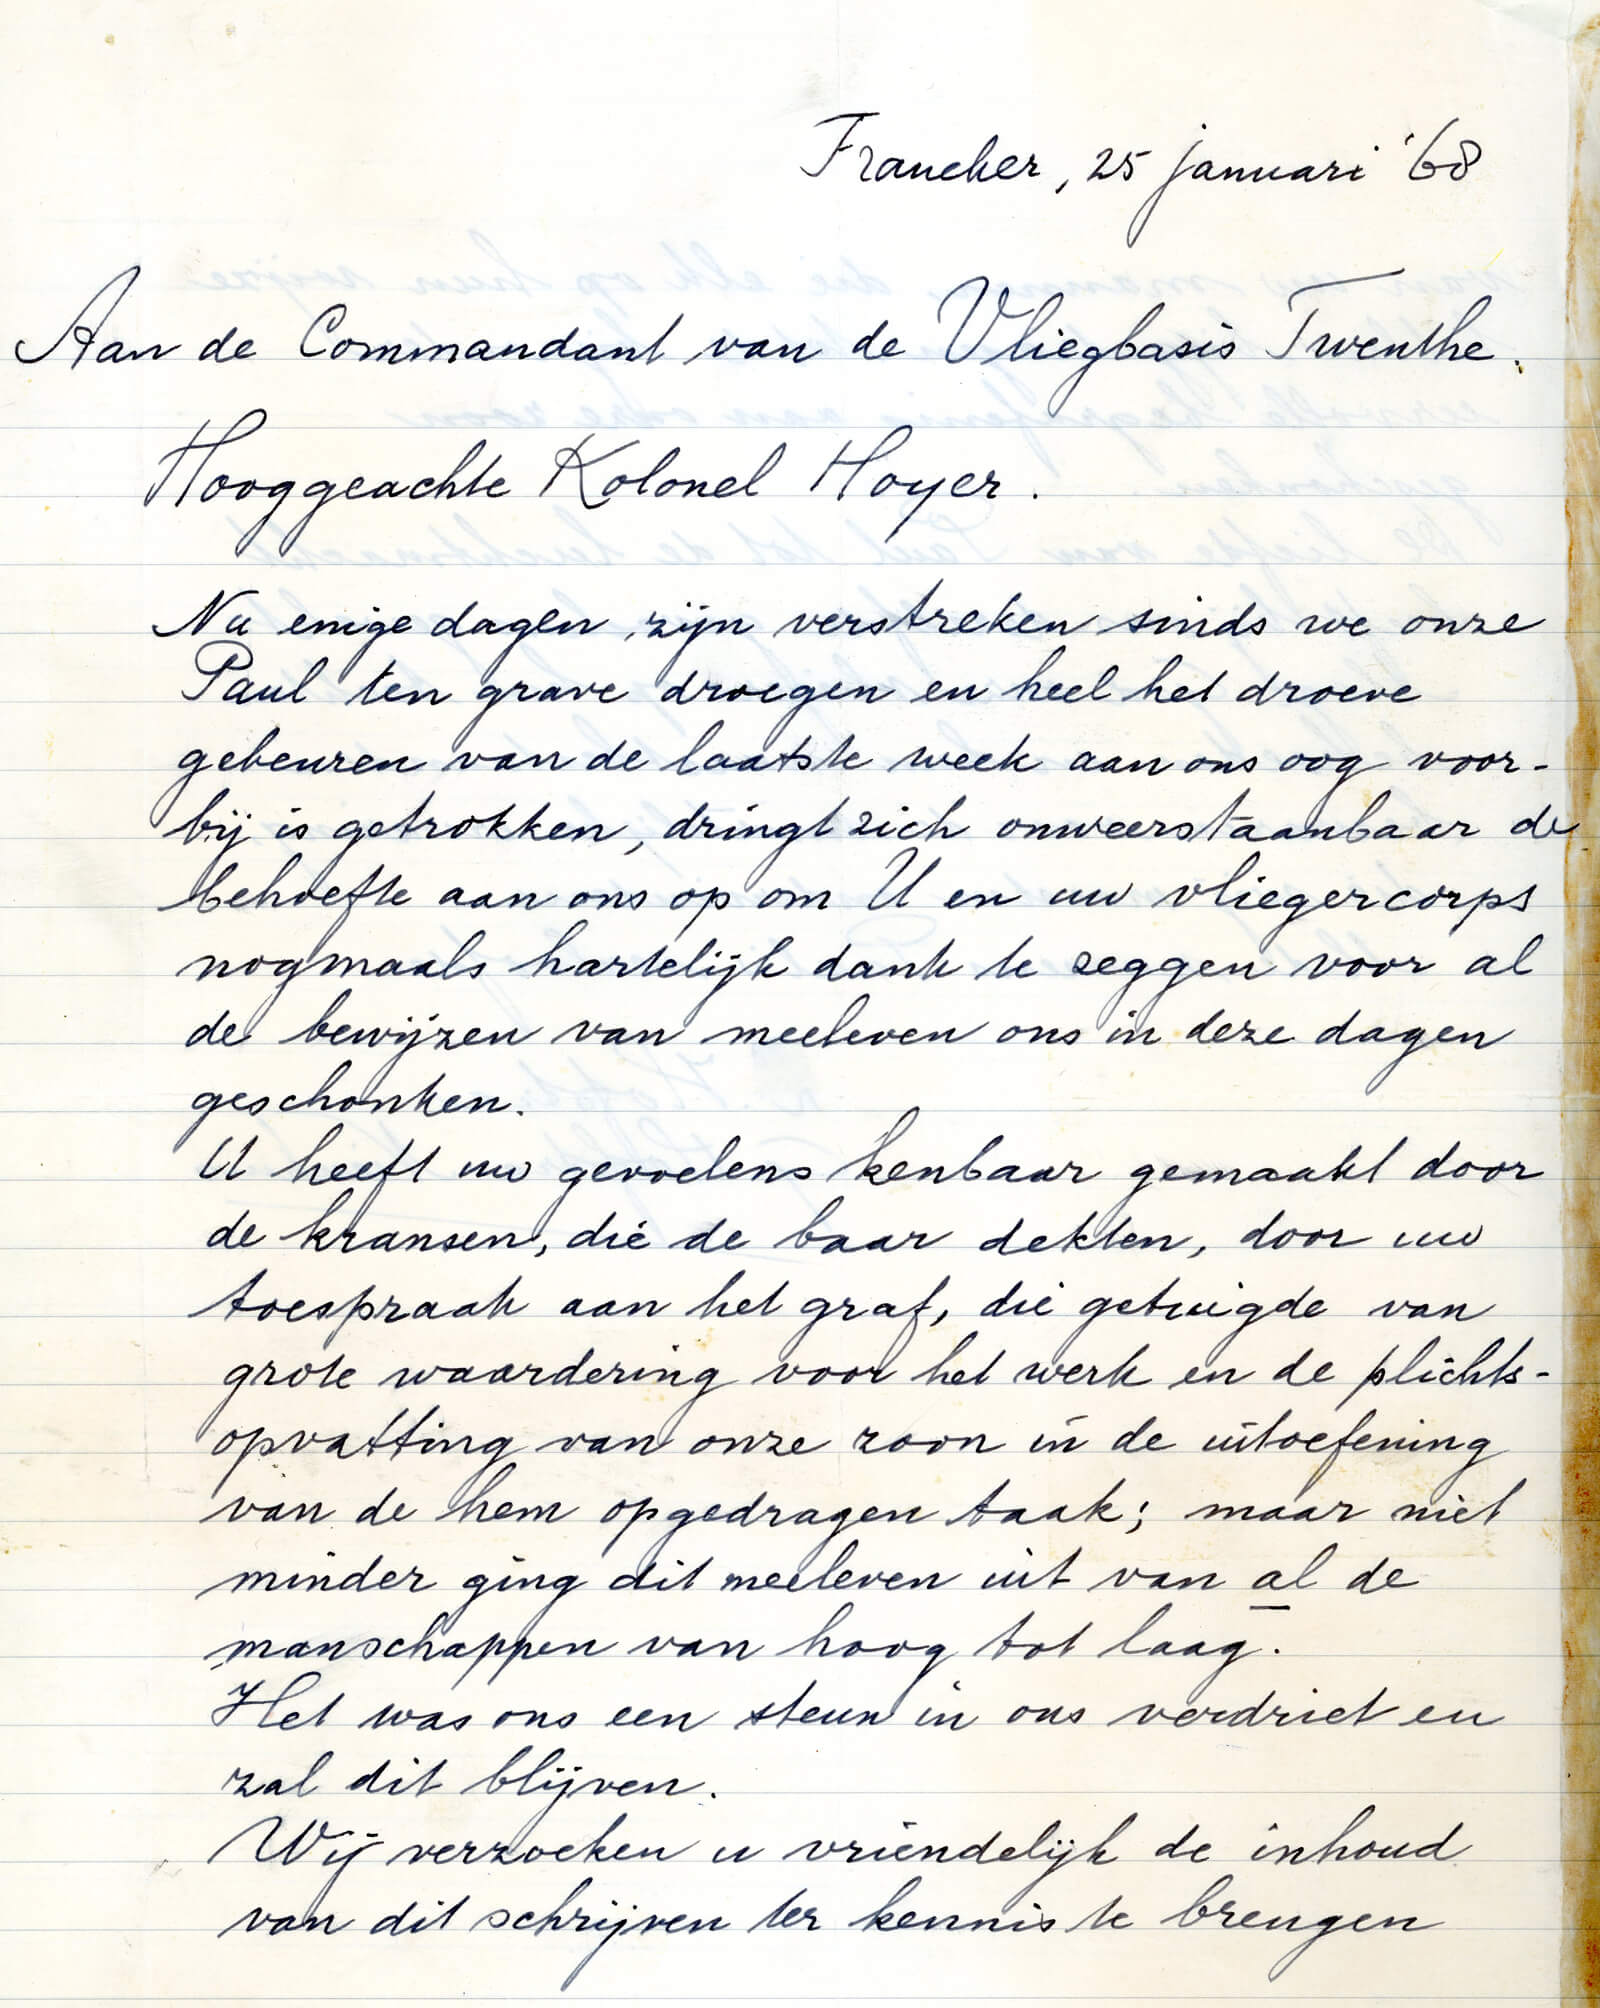 Franeker, 25 januari '68
Aan de Commandant van de Vliegbasis Twenthe.
Hooggeachte Kolonel Hoyer.
Nu enige dagen zijn verstreken sinds we onze
Paul ten grave droegen en heel het droeve
gebeuren van de laatste week aan ons oog voor-
bij is getrokken, dringt zich onweerstaanbaar de
behoefte aan ons op om U en uw vliegercorps
nogmaals hartelijk dank te zeggen voor al
de bewijzen van meeleven ons in deze dagen
geschonken.
U heeft uw gevoelens kenbaar gemaakt door
de kransen, die de baar dekten, door uw
toespraak aan het graf, die getuigde van
grote waardering voor het werk en de plichts-
opvatting van onze zoon in de uitoefening
van de hem opgedragen taak; maar niet
minder ging dit meeleven uit van al de
manschappen van hoog tot laag.
Het was ons een steun in ons verdriet en
zal dit blijven.
Wij verzoeken u vriendelijk de inhoud
van dit schrijven ter kennis te brengen